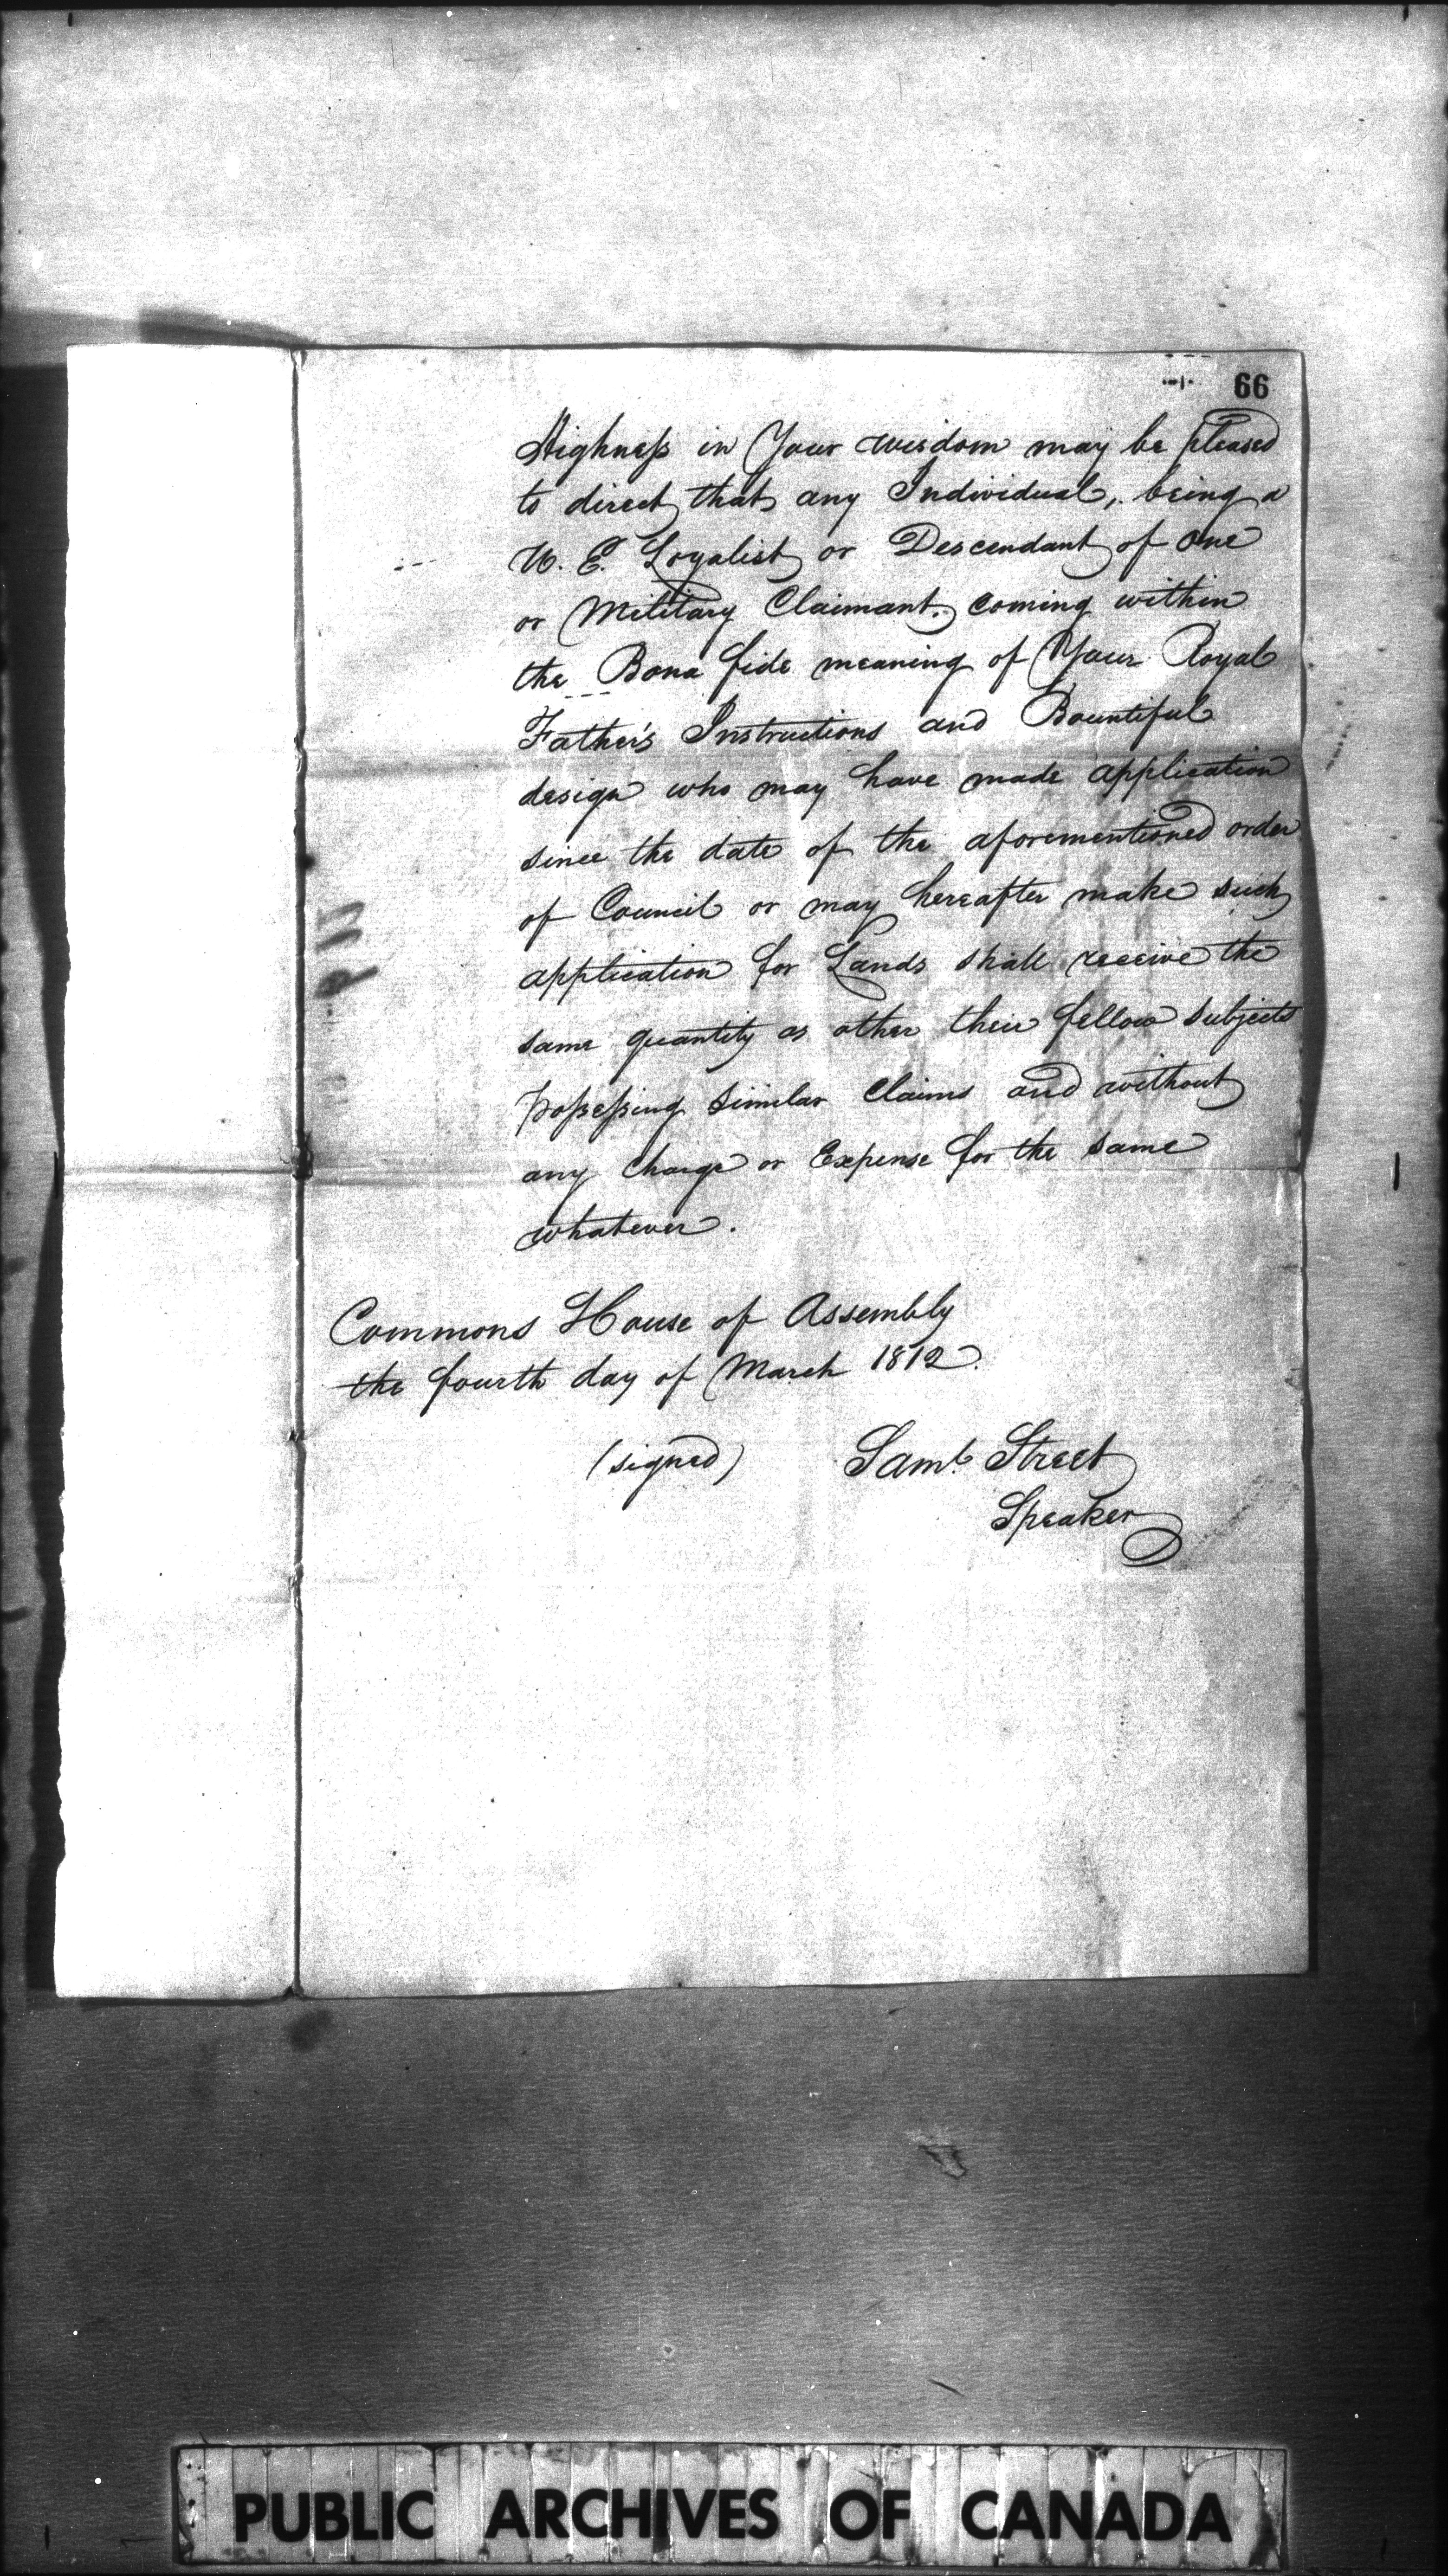 66
Highness in Your wisdom may be pleased
to direct that any Individual, being a
U. E. Loyalist or Descendant of one
or Military Claimant, coming within
the Bona fide meaning of Your Royal
Father's Instructions and Bountiful
design who may have made application
since the date of the aforementioned order
of Council or may hereafter make such
application for Lands shall receive the
same quantity as other their fellow subjects
possessing similar Claims and without
any charge or Expense for the same
whatever.
Commons House of Assembly
the fourth day of March 1812.
(signed) Saml. Street
Speaker
PUBLIC ARCHIVES OF CANADA